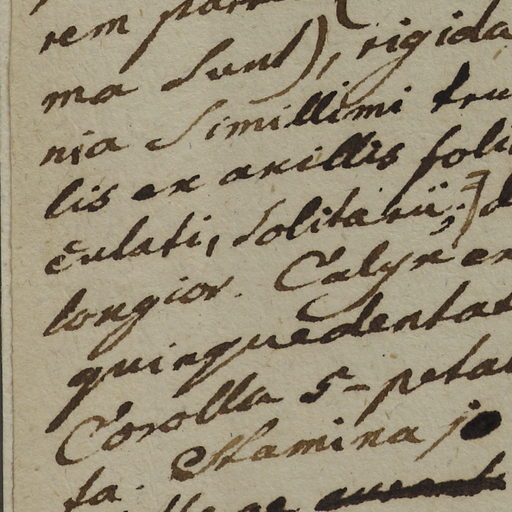 rem par
ma sunt), rigida
nia Simillimi tru
lis ex axillis foli
culati, solitarii; d
longior. Calyx er
quinquedentat
Corolla 5-peta
ta. Stamina